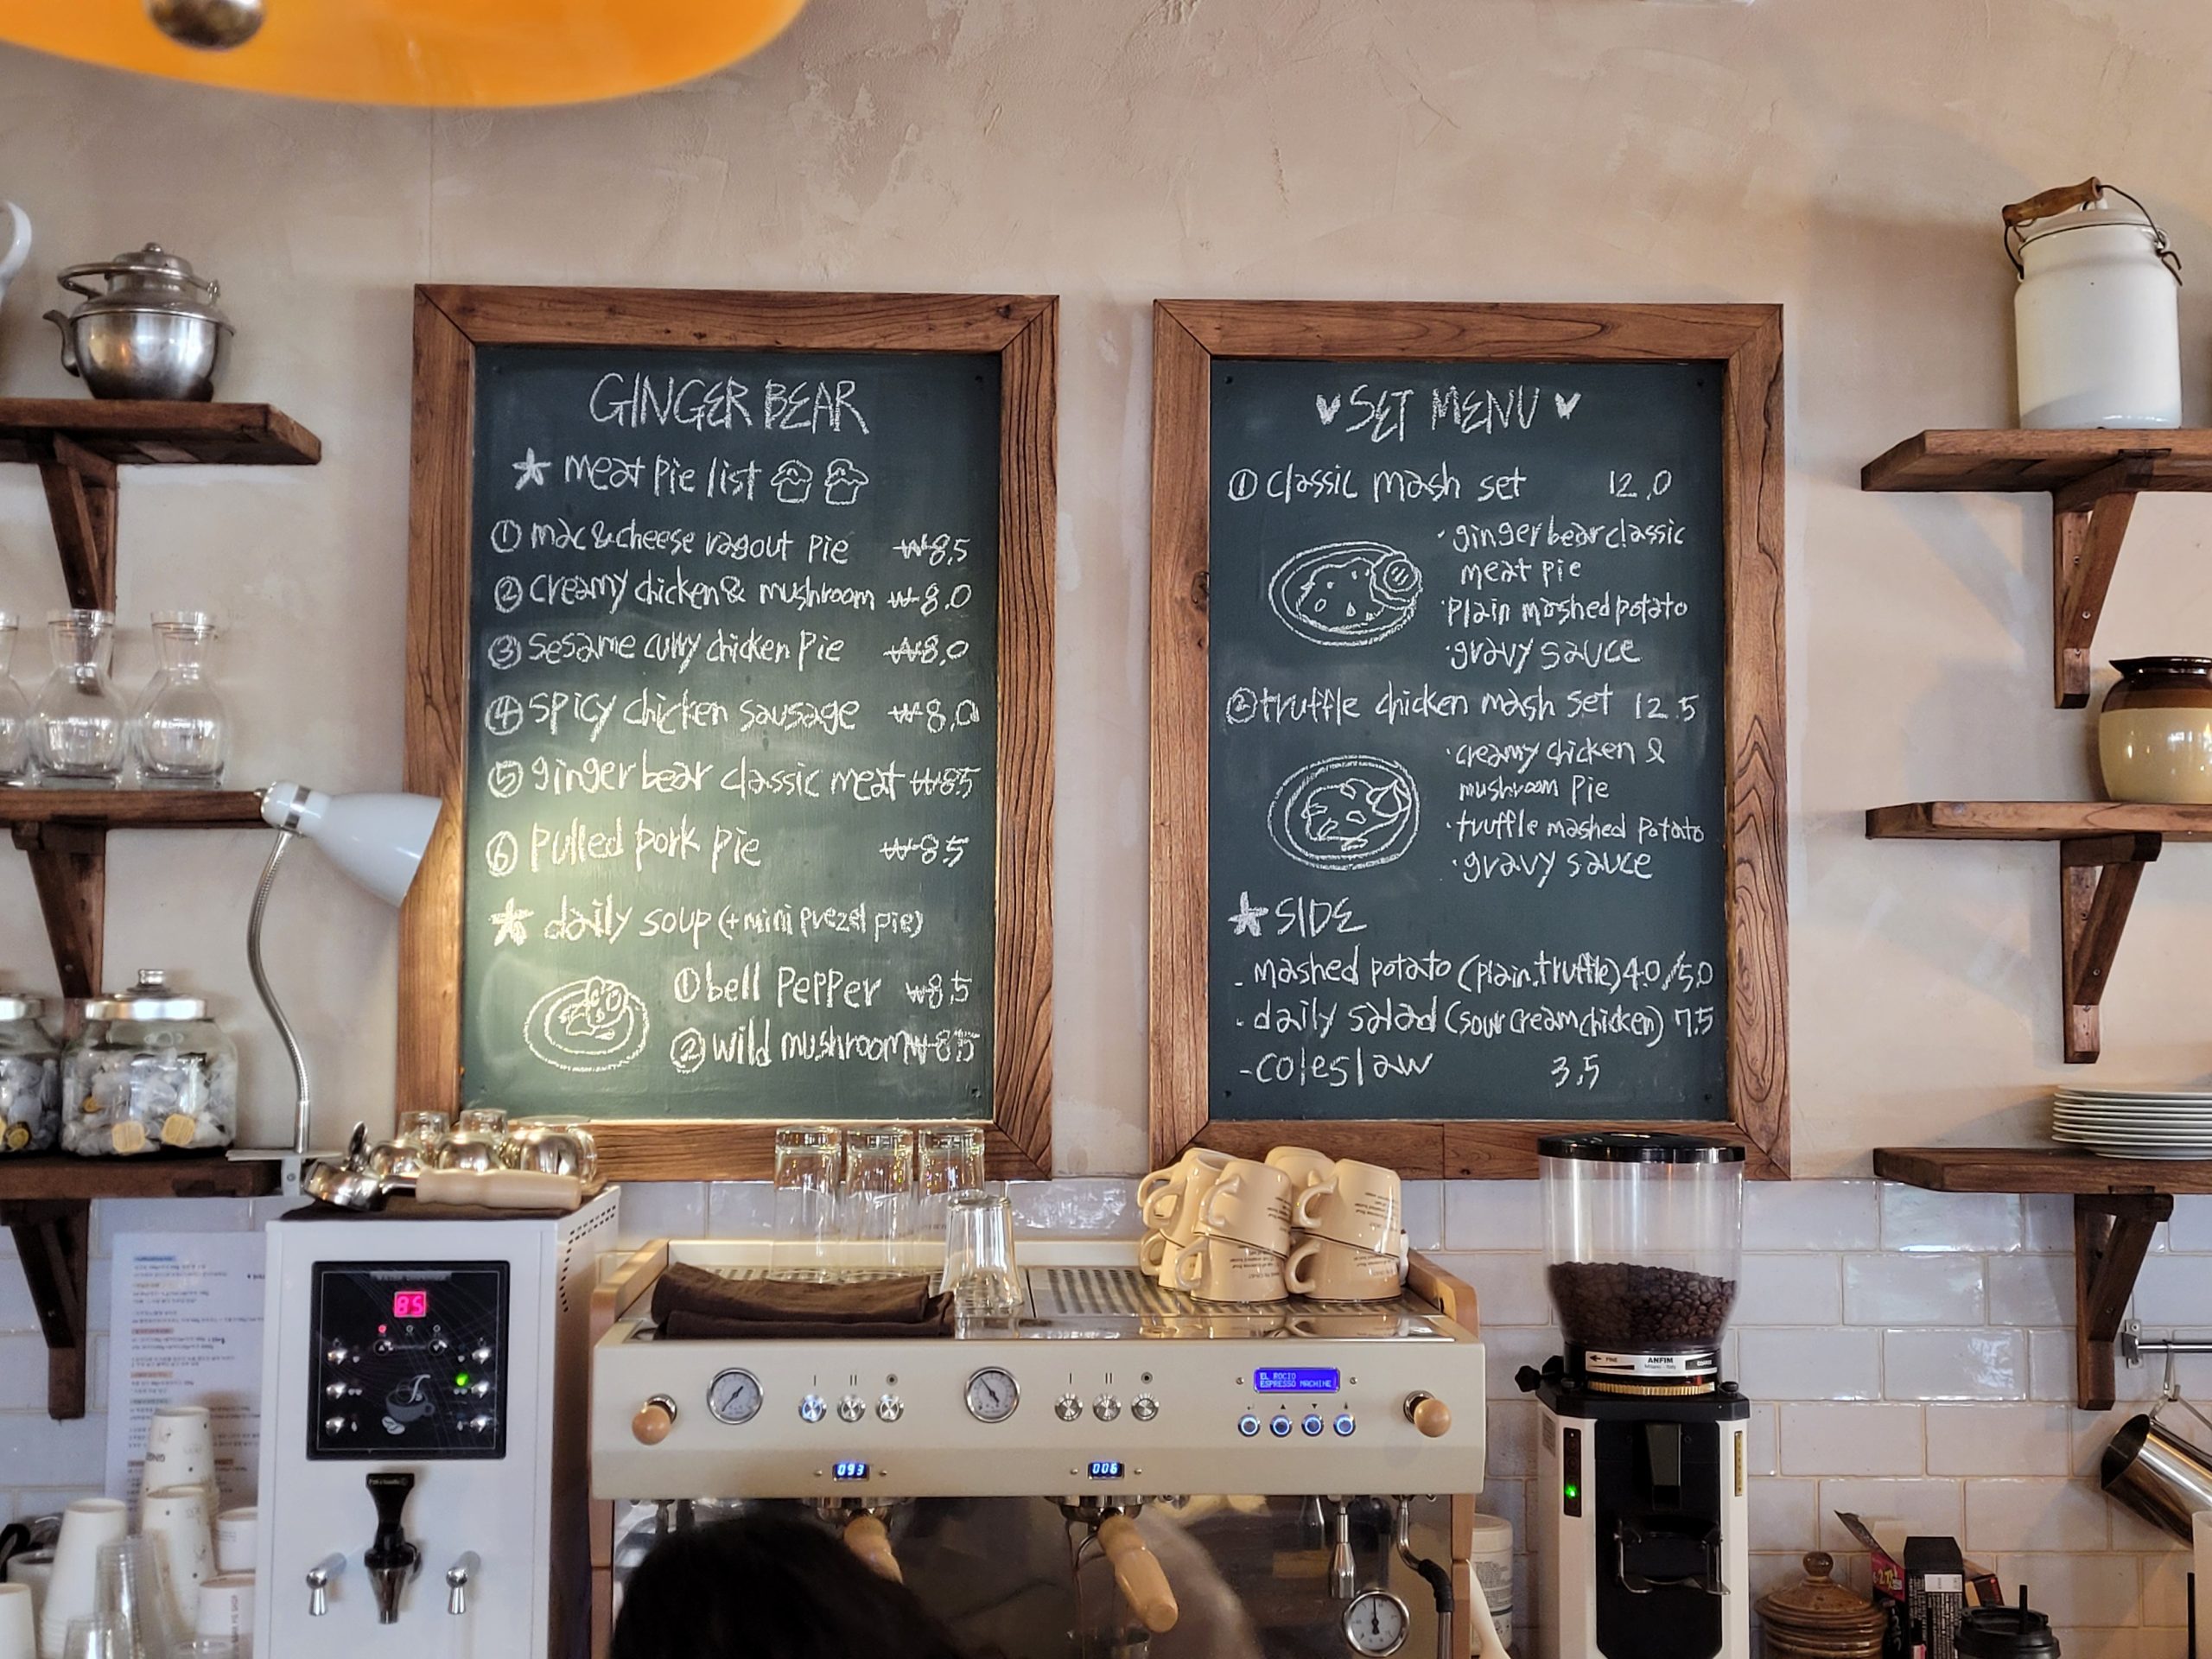 GINGER BEAR
meat pie list
① mac & cheese ragout pie ₩8.5
② creamy chicken & mushroom ₩8.0
③ sesame curry chicken pie ₩8.0
④ spicy chicken sausage ₩8.0
⑤ ginger bear classic meat ₩8.5
⑥ pulled pork pie ₩8.5
★ daily soup (+mini prezel pie)
① bell pepper ₩8.5
② wild mushroom ₩8.5
♥ SET MENU ♥
① classic mash set 12.0
· ginger bear classic
meat pie
· plain mashed potato
· gravy sauce
② truffle chicken mash set 12.5
· creamy chicken &
mushroom pie
· truffle mashed potato
· gravy sauce
★ SIDE
- mashed potato (plain, truffle) 4.0/5.0
- daily salad (sour cream chicken) 7.5
- coleslaw 3.5
85
EL ROCIO
ESPRESSO MACHINE
093
006
FINE ANFIM
Milano - Italy